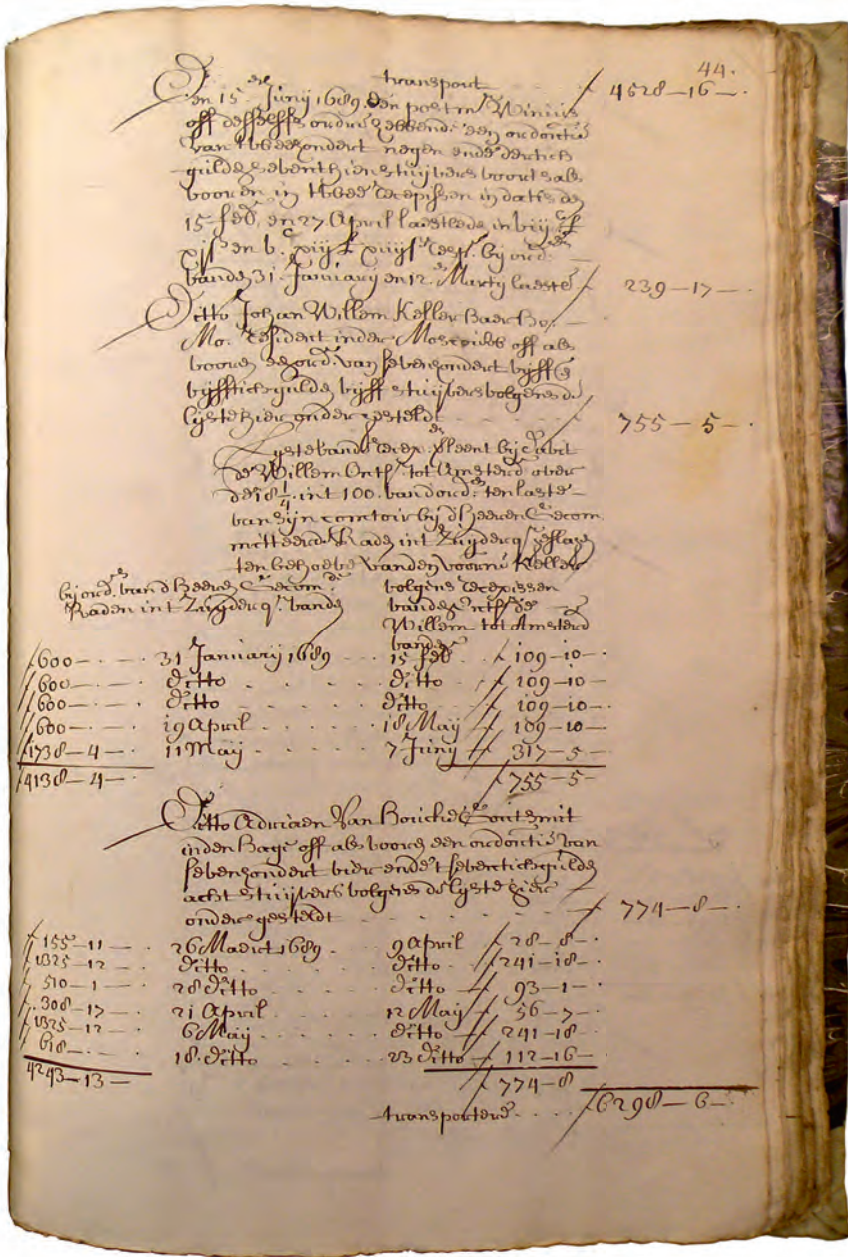 44.
transport - - - ƒ 4528–16–.
Den 15en Junij 1689. den postmr Winius
off desselfs ordre hebbend: een ordontie
van twee hondert negen ende dertich
guld: seventhien stuijvers voort als
vooren in twee recepissen in datis den
15 feb. en 27 April laestlede in
en bij ord.
vande 31 January en 12 Marty laestl. ƒ 239–17–.
Ditto Johan Willem Keller Haer Ho:
Mo. Resident inde Moscovies off als
vooren een ord. van sevenhondert vijff en
vijfftich guld: vijff stuijvers volgens de
lijste hier onder gesteld: - - - ƒ 755–5–.
Lijste vande recep. verleent bij
de Willem Ontf. tot Amsterd. over
de 18¼ int 100. van d'ord. ten laste
van sijn comtoir bij d'Heeren Gecom
mitteerde Raden int Zuyder qr. geslagen
ten behoeve vanden voorn. Keller
bij ord. van d'Heeren Gecom.de
Raden int Zuyder qr. vande
volgens recepissen
vanden ontf. de
Willem tot Amsterd
vande
ƒ 600–.–. 31 January 1689 - - 15 feb. - ƒ 109–10–
ƒ 600–.–. ditto - - - - ditto - - ƒ 109–10–
ƒ 600–.–. ditto - - - - ditto - - ƒ 109–10–.
ƒ 600–.–. 19 April - - - - 18 Maij - ƒ 109–10–
ƒ 1738–4–. 11 Maij - - - - 7 Junij - ƒ 317–5–
ƒ 4138–4–. ƒ 755–5–
Ditto Adriaen Van Borckel Goutsmit
inden Hage off als vooren een ordontie van
sevenhondert vier ende t'seventich guld:
acht stuijvers volgens de lijste hier
onder gesteldt - - - - ƒ 774–8–.
ƒ 155–11–. 26 Maert 1689 - - 9 April - ƒ 28–8–.
ƒ 1325–12–. ditto - - - - ditto - ƒ 241–18–.
ƒ 510–1–. 28 ditto - - - - ditto - ƒ 93–1–.
ƒ 308–17–. 21 April - - - - 12 Maij ƒ 56–7–.
ƒ 1325–12–. 6 Maij - - - - ditto - ƒ 241–18–.
ƒ 618–.–. 18. ditto - - - - 23 ditto - ƒ 112–16–
4243–13– ƒ 774–8
transportere - - - ƒ 6298–6–.